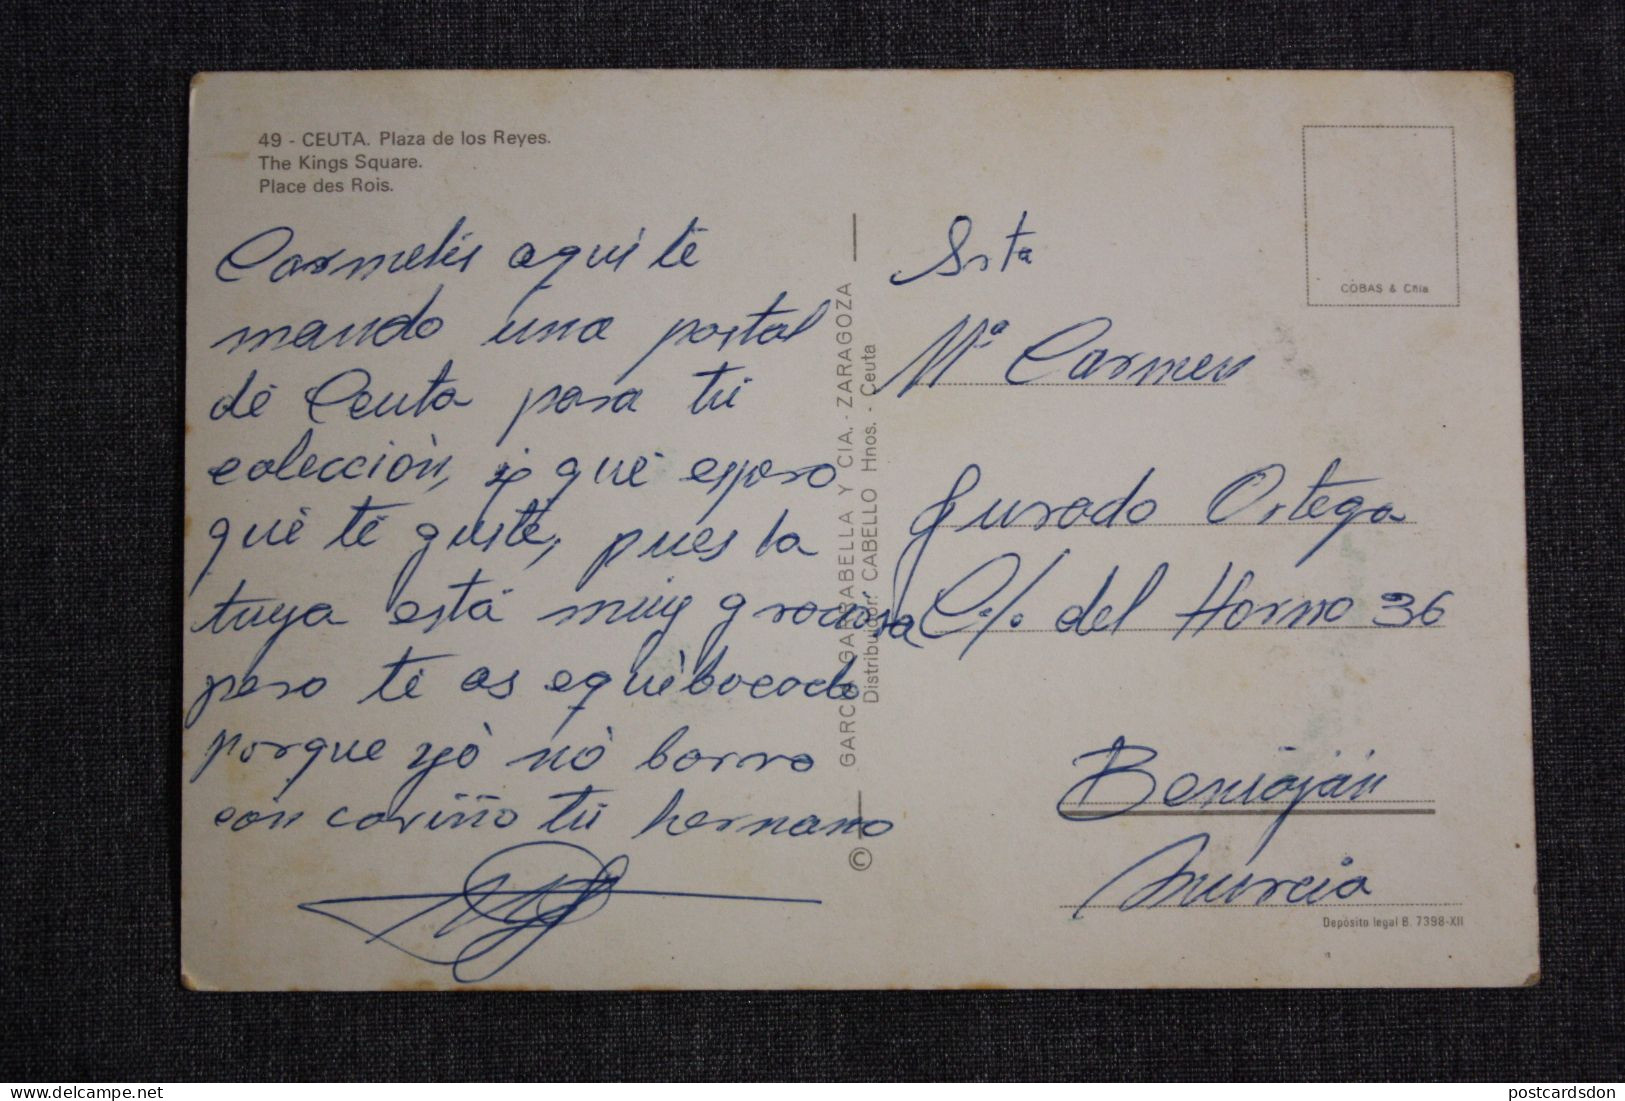 49 - CEUTA. Plaza de los Reyes.
The Kings Square.
Place des Rois.
Carmelis aqui té
mando una postal
dé Ceuta para tú
colección, y qué espero
qué té guste, pues la
tuya está muy graciosa
pero té as equibocado
porque yó nó borro
con cariño tú hermano
GARCIA GARRABELLA Y CIA. - ZARAGOZA
Distribuidor: CABELLO Hnos. - Ceuta
©
COBAS & Cñia
Srta
Mª Carmen
Jurado Ortega
C/. del Horno 36
Beniaján
Murcia
Depósito legal B. 7398-XII
postcardsdon